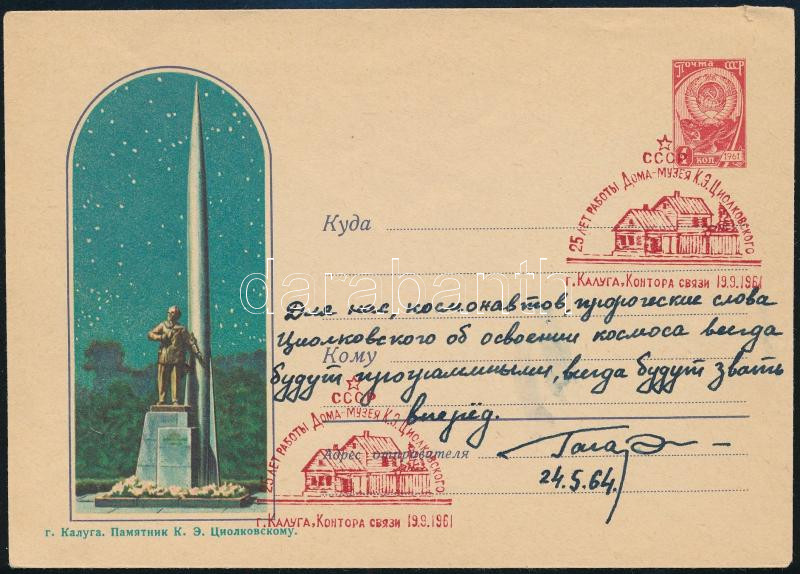 Почта СССР
4 коп 1961
СССР
25 ЛЕТ РАБОТЫ ДОМА-МУЗЕЯ К.Э.ЦИОЛКОВСКОГО
г. КАЛУГА, КОНТОРА СВЯЗИ 19.9.1961
Куда
darabanth
Для нас, космонавтов, пророческие слова
Циолковского об освоении космоса всегда
Кому
будут программными, всегда будут звать
вперёд.
СССР
25 ЛЕТ РАБОТЫ ДОМА-МУЗЕЯ К.Э.ЦИОЛКОВСКОГО
Адрес отправителя
24.5.64г.
г. КАЛУГА, КОНТОРА СВЯЗИ 19.9.1961
г. Калуга. Памятник К. Э. Циолковскому.